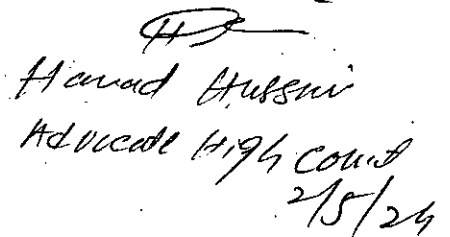 Hamad Hussain
Advocate High Court
2/5/24